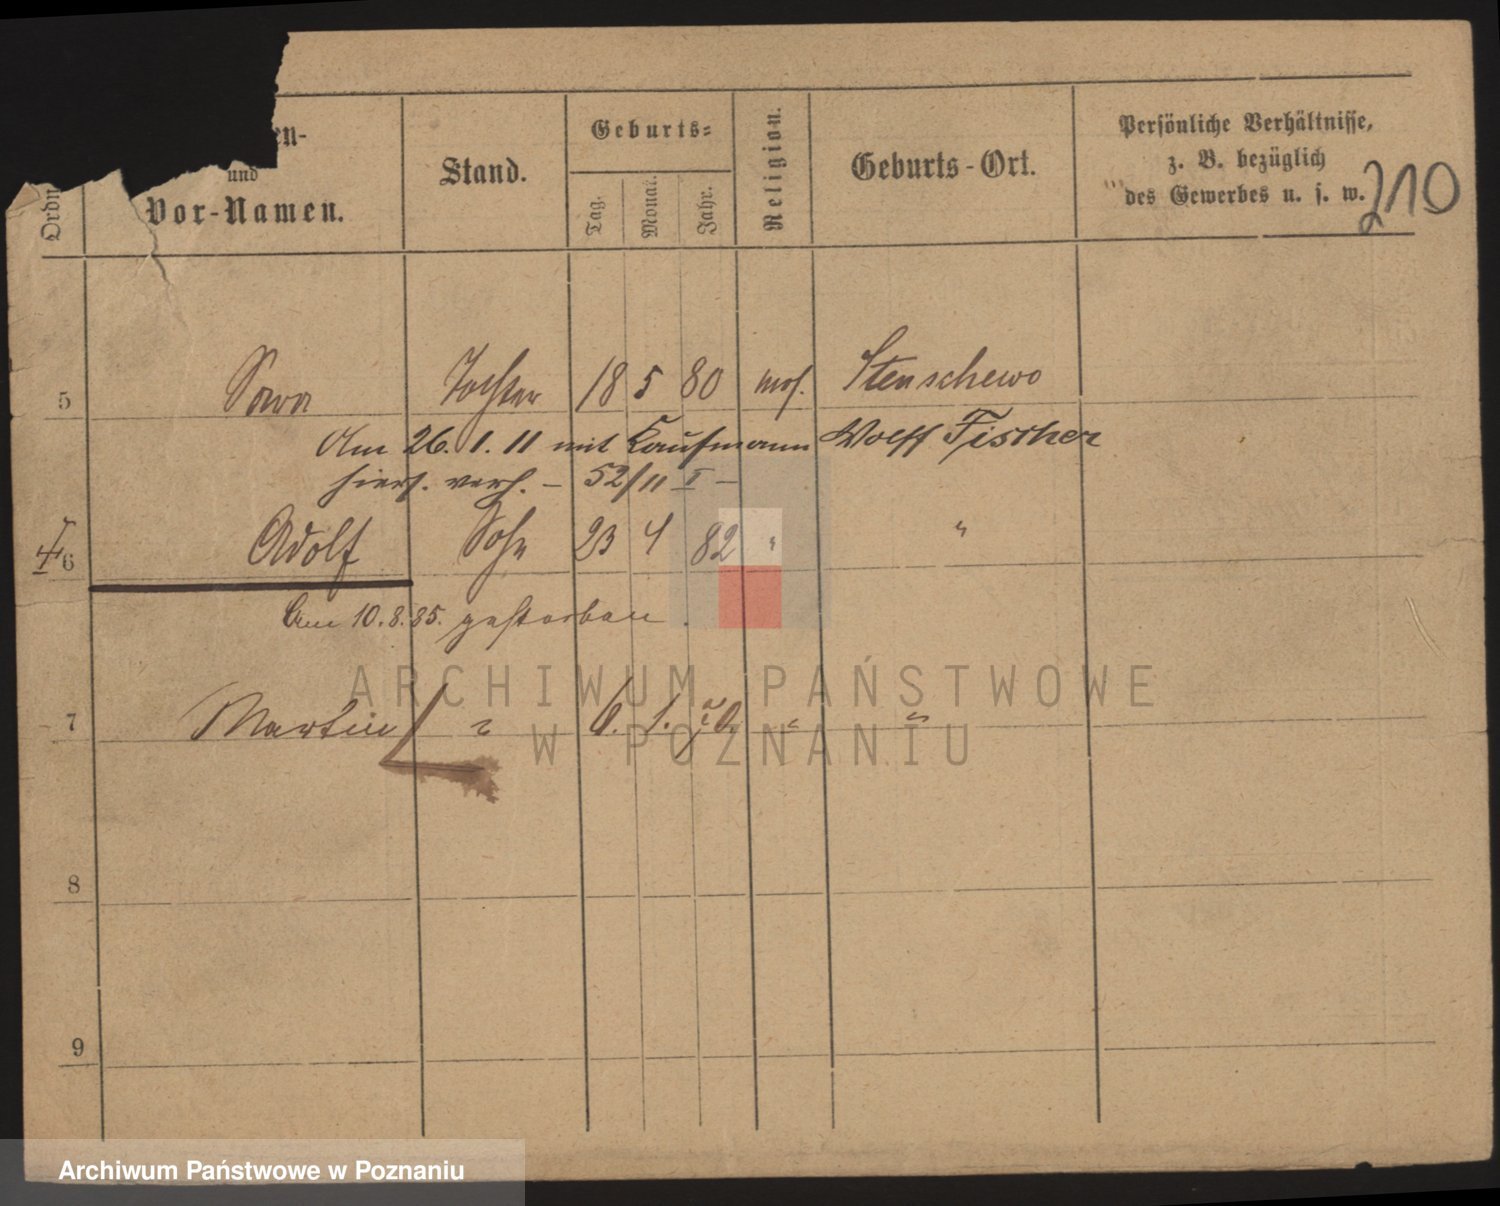 Ordn
en-
und
Vor-Namen.
Stand.
Geburts-
Tag.
Monat.
Jahr.
Religion.
Geburts-Ort.
Persönliche Verhältnisse,
z. B. bezüglich
des Gewerbes u. s. w.
210
5 Sara Tochter 18 5 80 mos. Stenschewo
Am 26. 1. 11 mit Kaufmann Wolff Fischer
hiers. verh. – 52/11 I –
6 Adolf Sohn 23 4 82 " "
Am 10.8.85. gestorben.
7 Martin " 6. 1. " "
8
9
ARCHIWUM PAŃSTWOWE
W POZNANIU
Archiwum Państwowe w Poznaniu